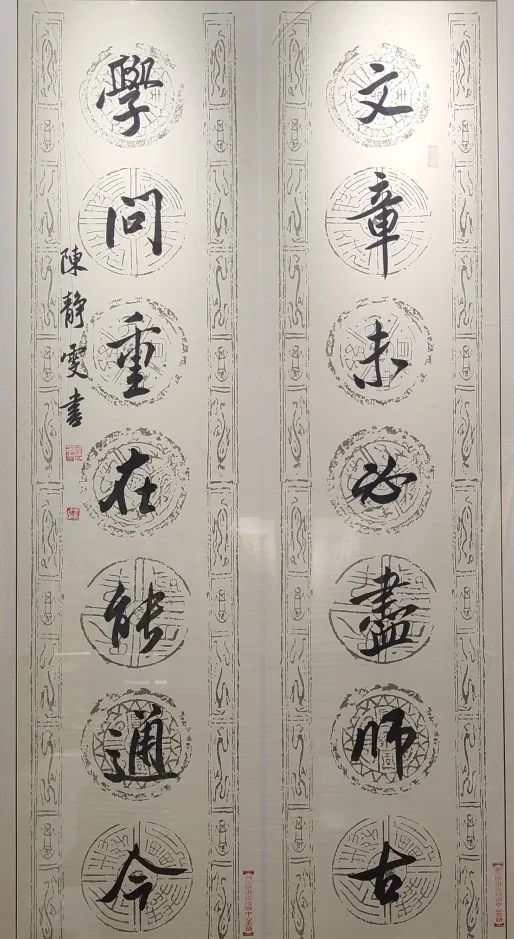 文章未必盡师古
學问重在能通今
陳靜雯書